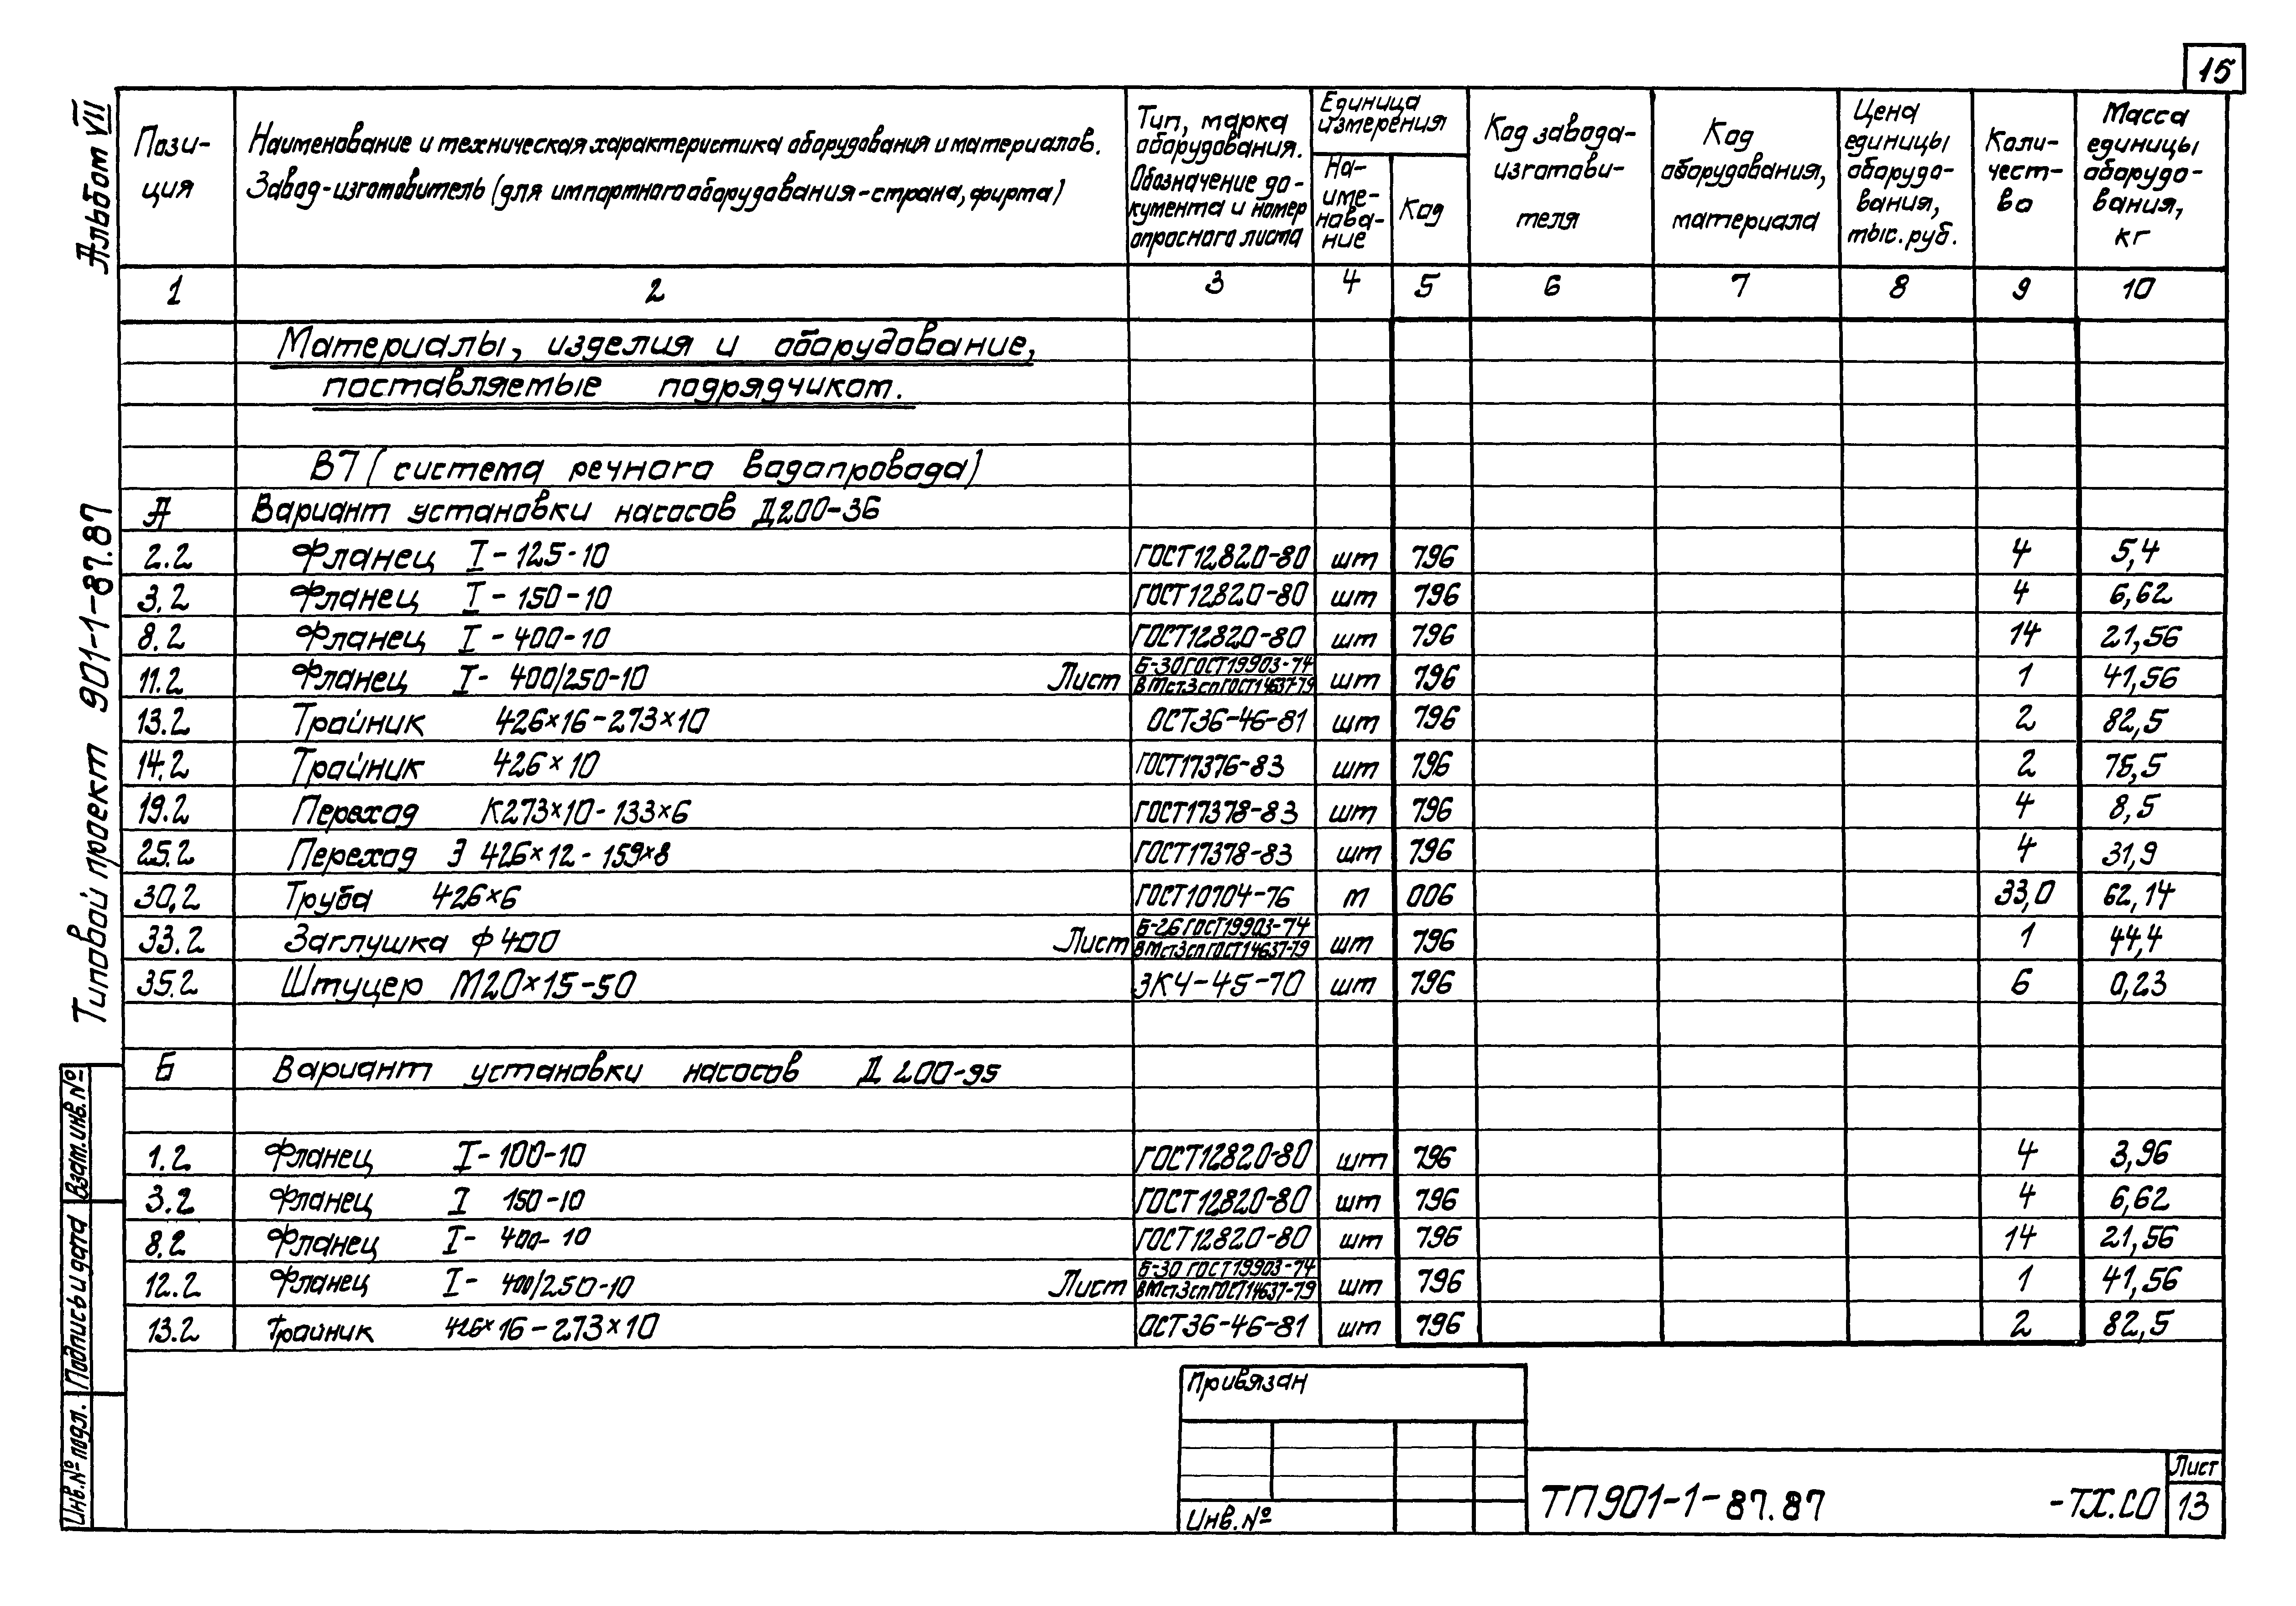 15
Альбом VII
Типовой проект 901-1-87.87
Пози-
ция
Наименование и техническая характеристика оборудования и материалов.
Завод-изготовитель (для импортного оборудования-страна, фирма)
Тип, марка
оборудования.
Обозначение до-
кумента и номер
опросного листа
Единица
измерения
На-
име-
нова-
ние
Код
Код завода-
изготови-
теля
Код
оборудования,
материала
Цена
единицы
оборудо-
вания,
тыс. руб.
Коли-
чест-
во
Масса
единицы
оборудо-
вания,
кг
1 2 3 4 5 6 7 8 9 10
Материалы, изделия и оборудование,
поставляемые подрядчиком.
В7 (система речного водопровода)
А Вариант установки насосов Д200-36
2.2 Фланец I-125-10 ГОСТ12820-80 шт 796 4 5,4
3.2 Фланец I-150-10 ГОСТ12820-80 шт 796 4 6,62
8.2 Фланец I-400-10 ГОСТ12820-80 шт 796 14 21,56
11.2 Фланец I-400/250-10 Лист Б-30 ГОСТ19903-74 шт 796 1 41,56
ВМст3сп ГОСТ14637-79
13.2 Тройник 426×16-273×10 ОСТ36-46-81 шт 796 2 82,5
14.2 Тройник 426×10 ГОСТ17376-83 шт 796 2 75,5
19.2 Переход К273×10-133×6 ГОСТ17378-83 шт 796 4 8,5
25.2 Переход Э 426×12-159×8 ГОСТ17378-83 шт 796 4 31,9
30.2 Труба 426×6 ГОСТ10704-76 м 006 33,0 62,14
33.2 Заглушка ф400 Лист Б-26 ГОСТ19903-74 шт 796 1 44,4
ВМст3сп ГОСТ14637-79
35.2 Штуцер М20×15-50 ЗК4-45-70 шт 796 6 0,23
Б Вариант установки насосов Д 200-95
1.2 Фланец I-100-10 ГОСТ12820-80 шт 796 4 3,96
3.2 Фланец I 150-10 ГОСТ12820-80 шт 796 4 6,62
8.2 Фланец I-400-10 ГОСТ12820-80 шт 796 14 21,56
12.2 Фланец I-400/250-10 Лист Б-30 ГОСТ19903-74 шт 796 1 41,56
ВМст3сп ГОСТ14637-79
13.2 Тройник 426×16-273×10 ОСТ36-46-81 шт 796 2 82,5
Взам.инв.№
Подпись и дата
Инв.№ подл.
Привязан
Инв.№
ТП901-1-87.87 -ТХ.СО
Лист
13